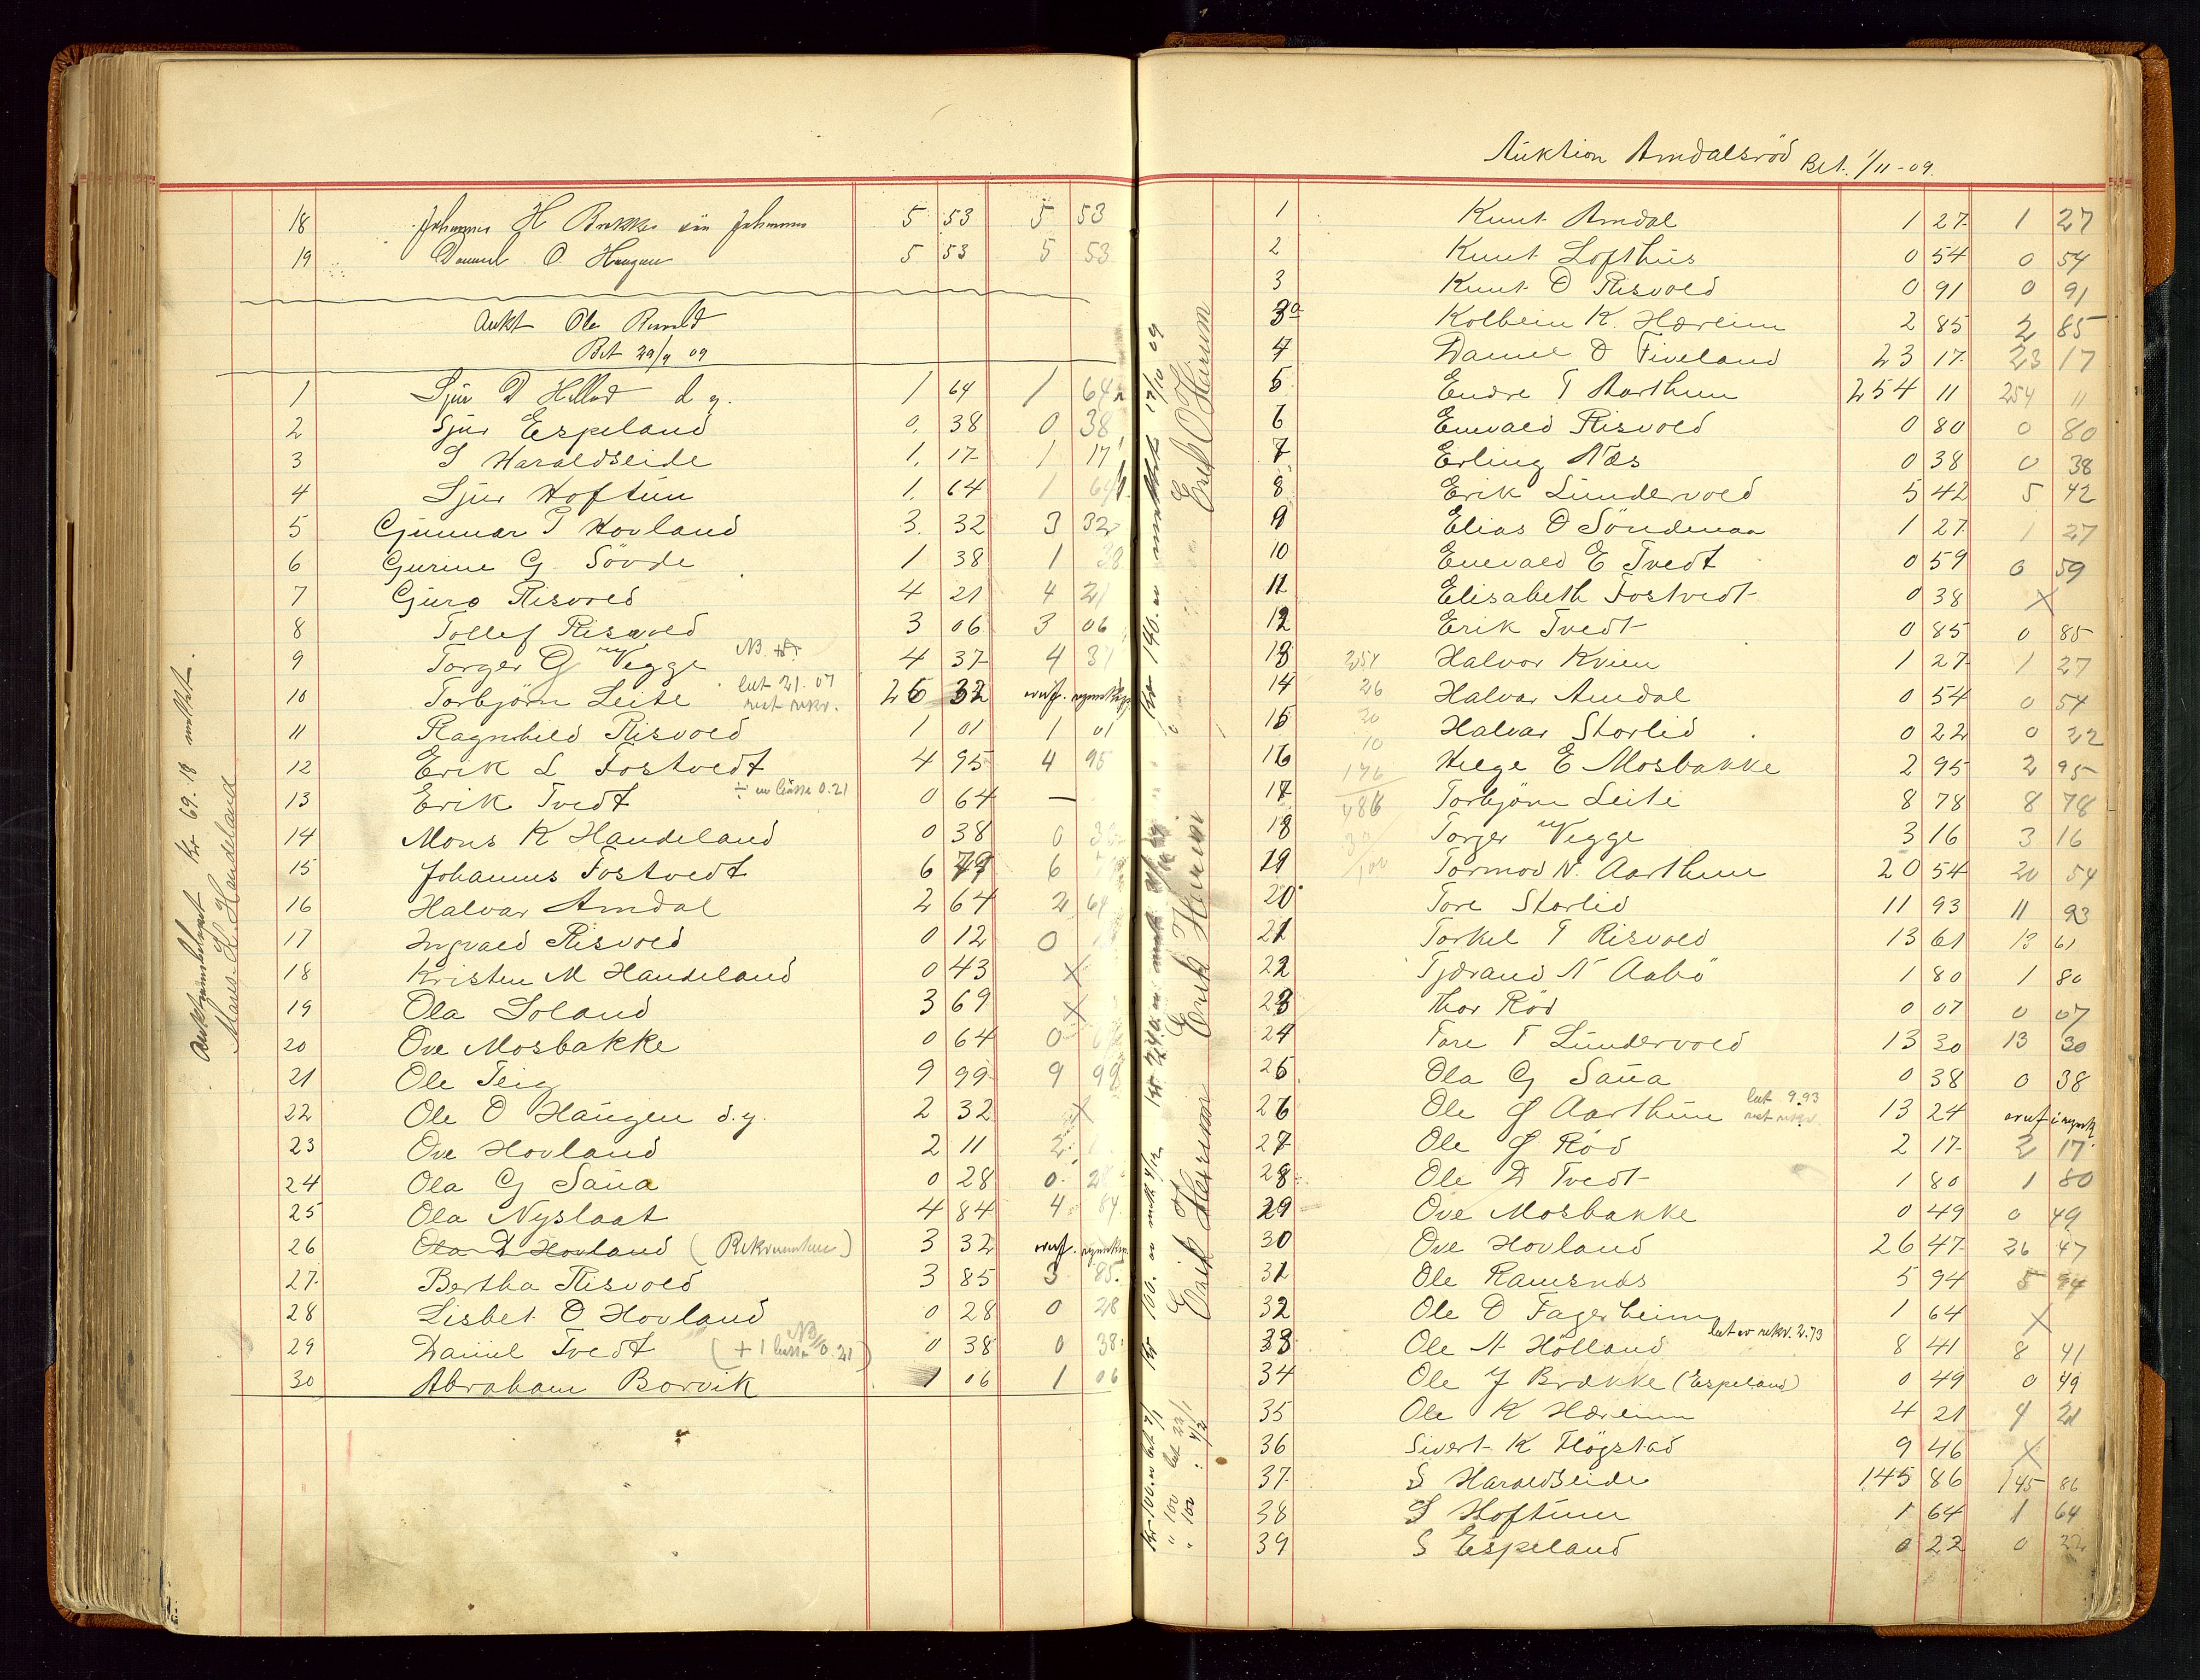 18 Johannes H Brekke sin Johannes 5 53 5 53
19 Daniel O. Haugen 5 53 5 53
Aukt Ola Risvold
Bet 29/9 09
1 Sjur D Hilland d y. 1 64 1 64
2 Sjur Espeland 0. 38 0 38
3 S Haraldseide 1. 17 1 17
4 Sjur Hoftun 1. 64 1 64
5 Gunnar T Hovland 3. 32 3 32
6 Gurine G. Sövde 1 38 1 38
7 Guro Risvold 4 21 4 21
8 Tollef Risvold 3 06 3 06
9 Torger G Vegge 4 37 4 37
10 Torbjörn Leite bet 21.07 rest rekv. 26 32
11 Ragnhild Risvold 1 01 1 01
12 Erik L Fostvedt 4 95 4 95
13 Erik Tvedt ÷ en lösse 0.21 0 64 —
14 Mons K Handeland 0 38 0 38
15 Johannes Fostvedt 6 79 6
16 Halvar Amdal 2 64 2 64
17 Ingvald Risvold 0 12 0
18 Kristen M Handeland 0 43 X
19 Ola Soland 3 69 X
20 Ove Mosbakke 0 64 0
21 Ole Teig 9 99 9 99
22 Ole O Haugen d.y. 2 32 X
23 Ove Hovland 2 11 2
24 Ola G Saua 0 28 0 28
25 Ola Nyslaat 4 84 4 84
26 Ola D Hovland (Rekvirenten) 3 32
27 Bertha Risvold 3 85 3 85
28 Lisbet O Hovland 0 28 0 28
29 Daniel Tvedt (+ 1 lösse 0.21) NB 0 38 0 38
30 Abraham Borvik 1 06 1 06
kr 69.18 mottat.
Mons K Handeland
Auktion Amdalsröd Bet. 1/11-09.
1 Knut Amdal 1 27 1 27
2 Knut Lofthus 0 54 0 54
3 Knut O Risvold 0 91 0 91
3a Kolbein K. Hæreim 2 85 2 85
4 Daniel O Fiveland 23 17 23 17
5 Endre T Aarthun 254 11 254 11
6 Enevald Risvold 0 80 0 80
7 Erling Næs 0 38 0 38
8 Erik Lundervold 5 42 5 42
9 Elias O Söndenaa 1 27 1 27
10 Enevald E Tvedt 0 59 0 59
11 Elisabeth Fostvedt 0 38 X
12 Erik Tvedt 0 85 0 85
13 Halvor Kvien 1 27 1 27
14 Halvar Amdal 0 54 0 54
15 Halvar Storlid 0 22 0 22
16 Helge E Mosbakke 2 95 2 95
17 Torbjörn Leite 8 78 8 78
18 Torger Vegge 3 16 3 16
19 Tormod N. Aarthun 20 54 20 54
20 Tore Storlid 11 93 11 93
21 Torkel T Risvold 13 61 13 61
22 Tjærand N Aabö 1 80 1 80
23 Thor Röd 0 07 0 07
24 Tore T Lundervold 13 30 13 30
25 Ola G Saua 0 38 0 38
26 Ole J Aarthun bet 9.93 rest rekv 13 24
27 Ole J Röd 2 17 2 17
28 Ole D Tvedt 1 80 1 80
29 Ove Mosbakke 0 49 0 49
30 Ove Hovland 26 47 26 47
31 Ole Ramsnæs 5 94 5 94
32 Ole O Fagerheim 1 64 X
33 Ole N Hölland bet av rekv. 2.73 8 41 8 41
34 Ole J Brække (Espeland) 0 49 0 49
35 Ole K Hæreim 4 21 4 21
36 Sivert K Flögstad 9 46 X
37 S Haraldseide 145 86 145 86
38 S Hoftun 1 64 1 64
39 S Espeland 0 22 0 22
254
26
20
10
176
486